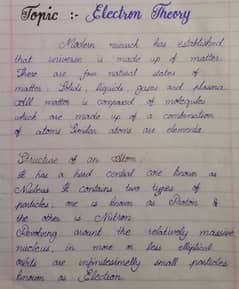 Topic :- Electron Theory
Modern reasearch has established
that universe is made up of matter.
There are four natural states of
matter: Solids, liquids, gases and plasma.
All matter is composed of molecules
which are made up of a combination
of atoms. Similar atoms are elements.
Structure of an Atom:
It has a hard central core known as
Nucleus. It contains two types of
particles; one is known as Proton &
the other is Nutron.
Revolving around the relatively massive
nucleus, in more or less elliptical
orbits are infinitessimelly small particles
known as Electron.